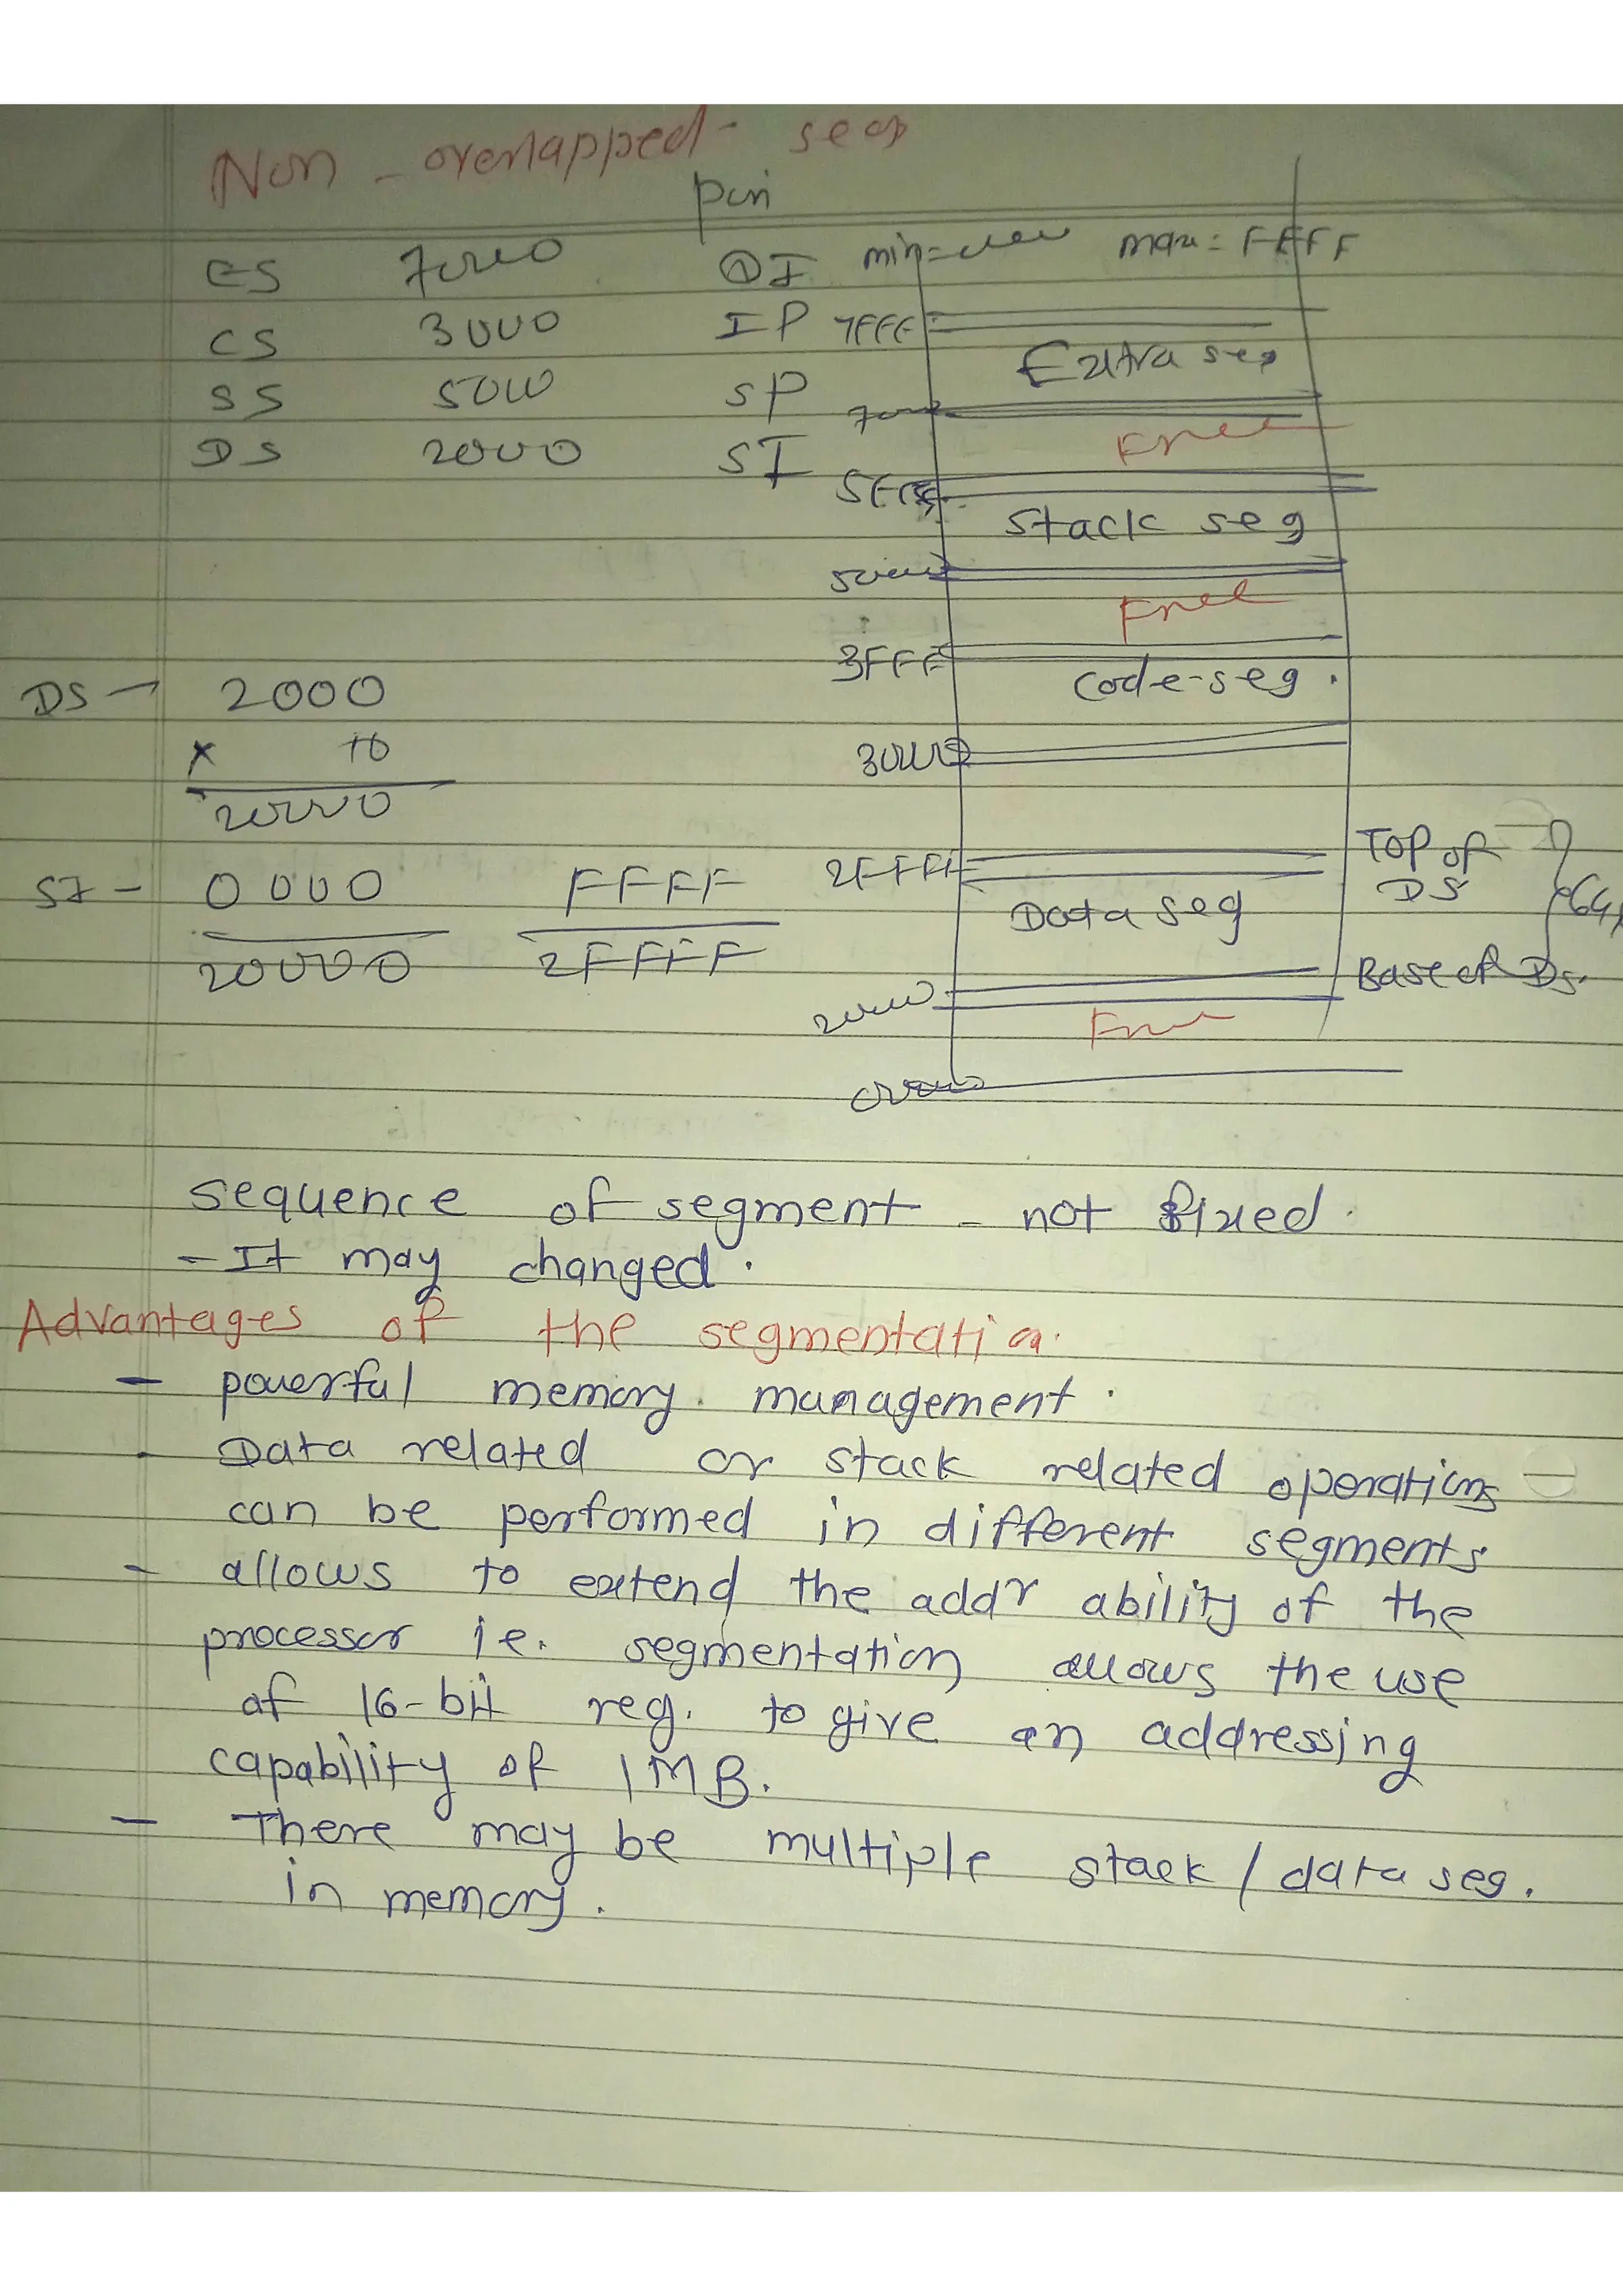 Non-overlapped- seg
pin
ES 7000 DI min=0000 max=FFFF
CS 3000 IP 7FFF
Extra seg
SS 5000 SP 7000
Free
DS 2000 SI
Stack seg
5000
Free
3FFF
DS 2000
Code-seg.
x 10
30000
20000
2FFFF Top of DS
SI - 0000 FFFF
Data seg
20000 2FFFF
Base of DS.
20000
Free
00000
sequence of segment - not fixed.
- It may changed.
Advantages of the segmentation.
- powerful memory management.
- Data related or stack related operations
can be performed in different segments
- allows to extend the addr ability of the
processor ie. segmentation allows the use
of 16-bit reg. to give an addressing
capability of 1MB.
- There may be multiple stack / data seg.
in memory.